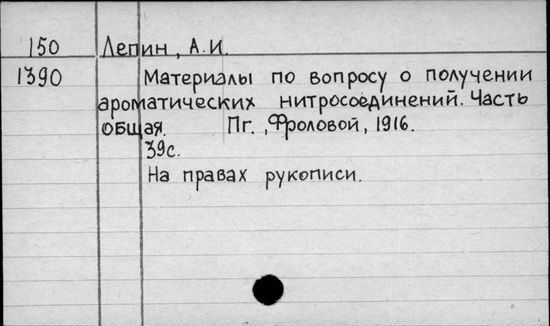 150 Лепин, А.И.
1390 Материалы по вопросу о получении
ароматических нитросоединений. Часть
общая. Пг., Фроловой, 1916.
39с.
На правах рукописи.